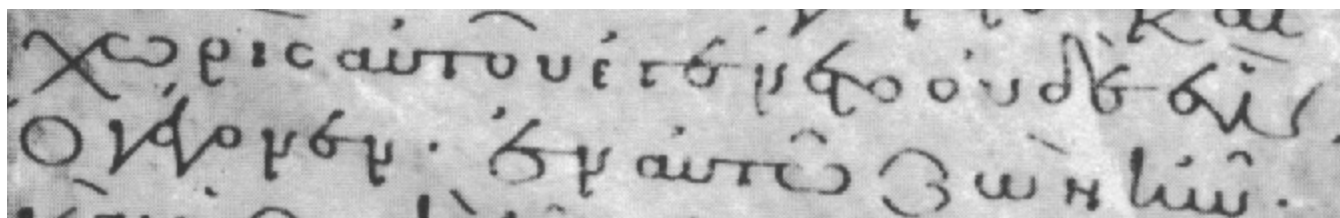 καὶ
χωρὶς αὐτοῦ ἐγένετο οὐδὲ ἕν
ὃ γέγονεν· ἐν αὐτῶ ζωὴ ἦν·